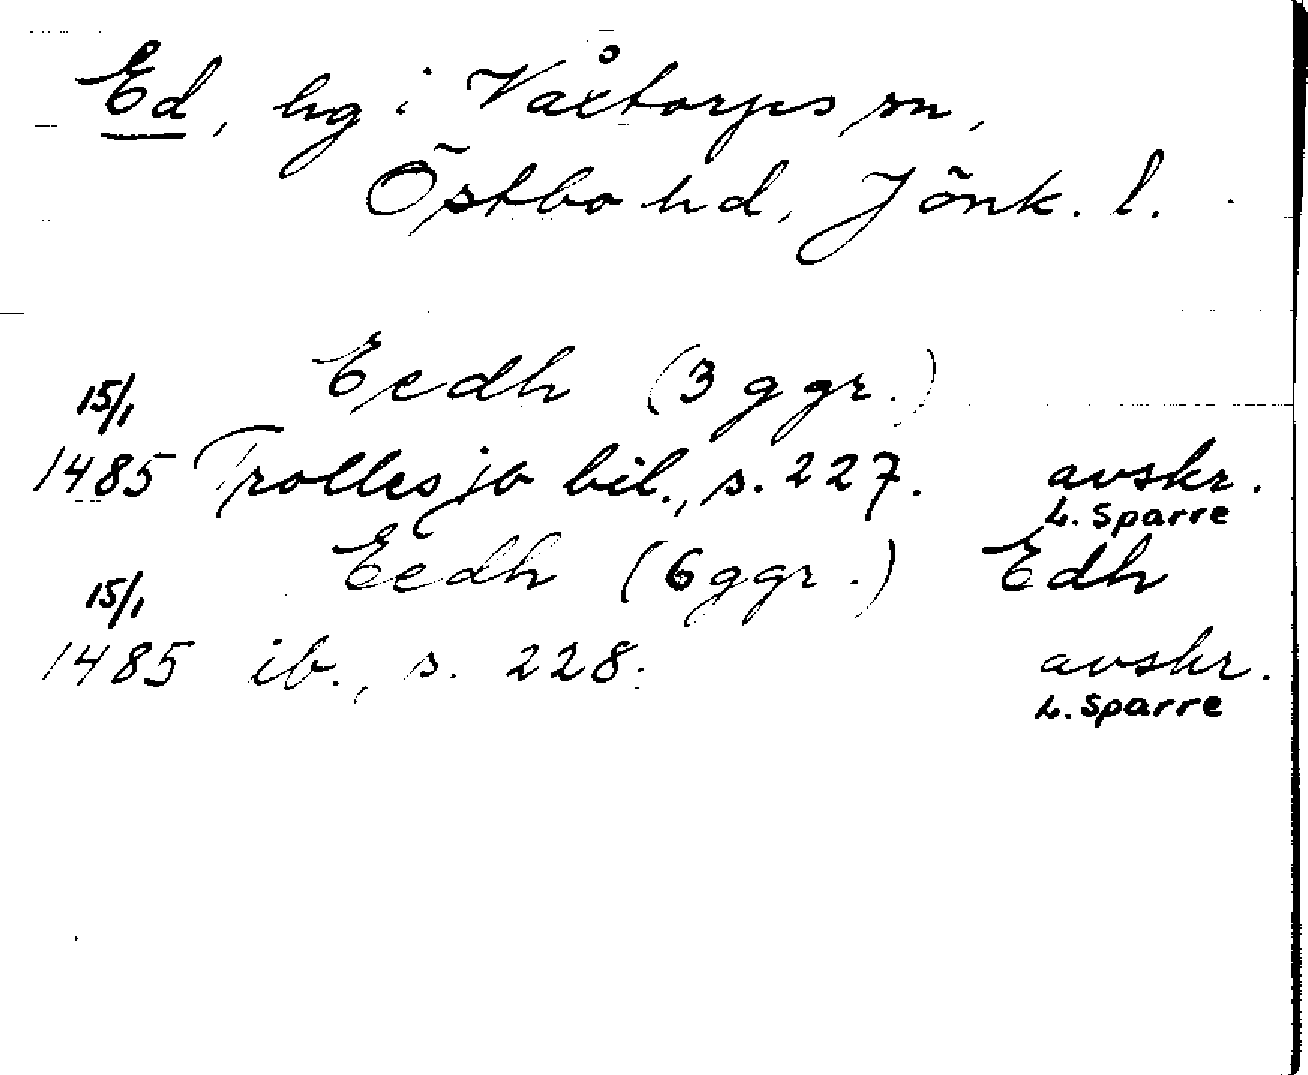 Ed, hg i Våxtorps sn,
Östbo hd, Jönk. l.
Eedh (3 ggr.)
15/1
1485 Trolles jb bil., s. 227. avskr.
L. Sparre
Eedh (6 ggr.) Edh
15/1
1485 ib., s. 228. avskr.
L. Sparre